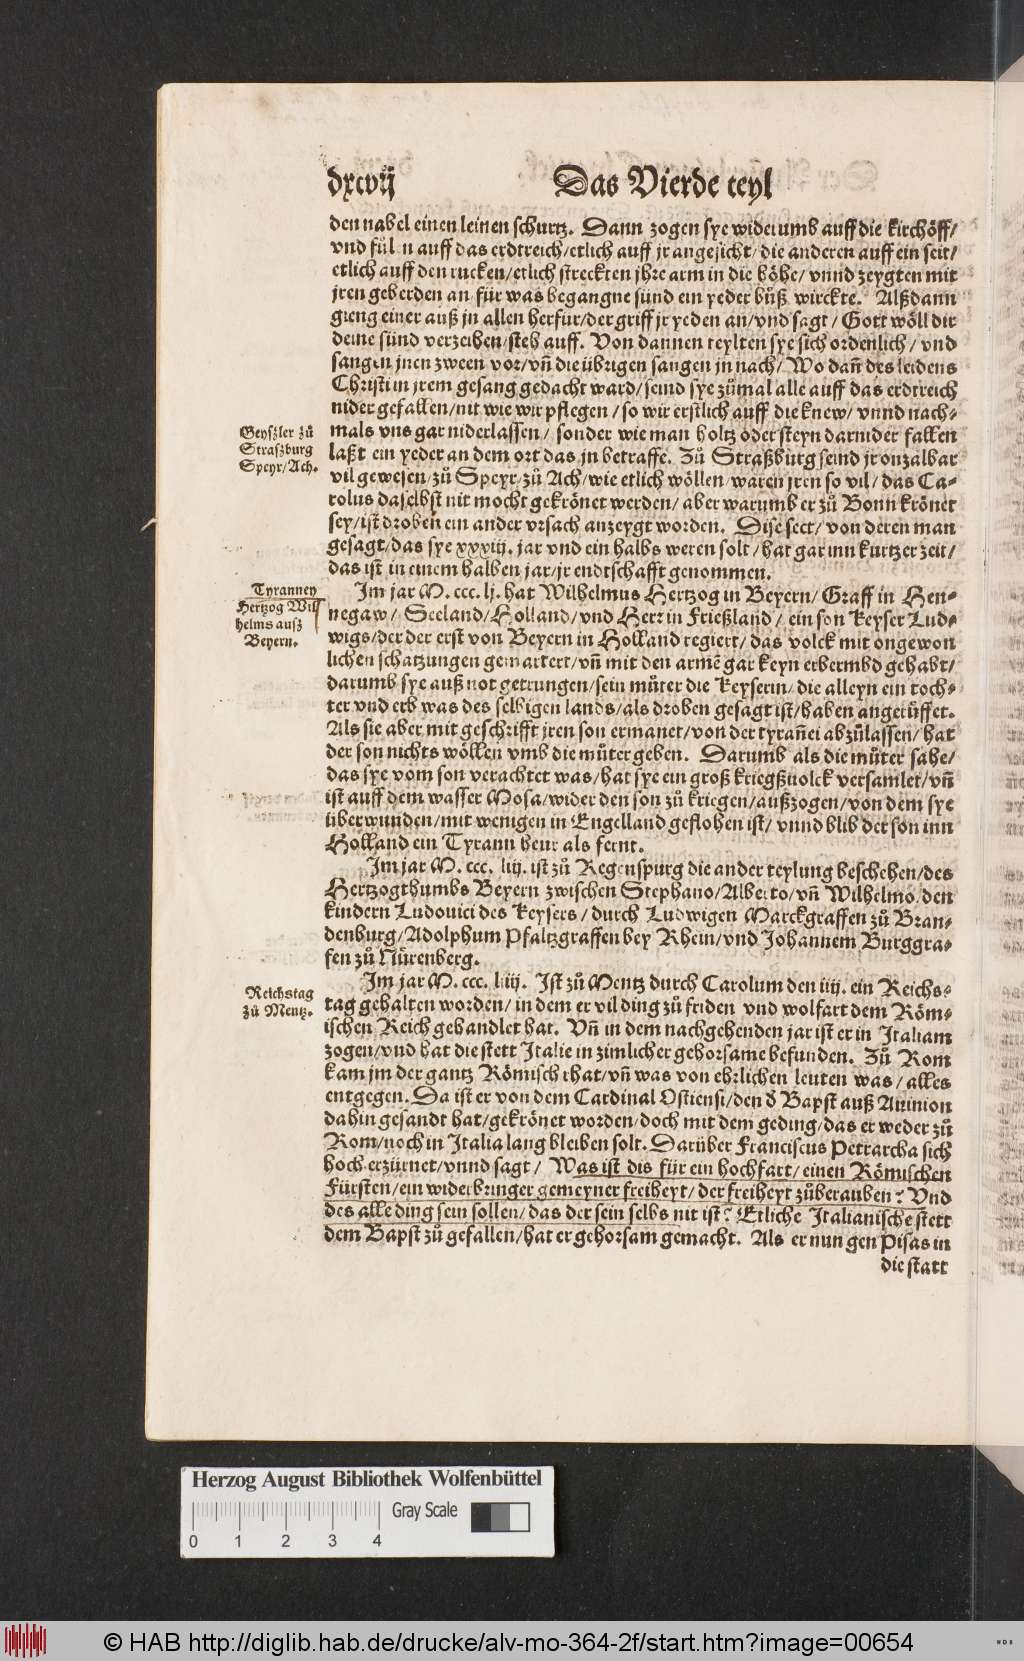 dxcvij
Das Vierde teyl
den nabel einen leinen schurtz. Dann zogen sye widerumb auff die kirchöff/
vnd fül n auff das erdtreich/etlich auff jr angesicht/die anderen auff ein seit/
etlich auff den rucken/etlich streckten jhre arm in die höhe/vnnd zeygten mit
jren geberden an für was begangne sünd ein yeder bůß wirckte. Alßdann
gieng einer auß jn allen herfür/der griff jr yeden an/vnd sagt/Gott wöll dir
deine sünd verzeihen/steh auff. Von dannen teylten sye sich ordenlich/vnd
sangen jnen zween vor/vñ die übrigen sangen jn nach/Wo dañ des leidens
Christi in jrem gesang gedacht ward/seind sye zůmal alle auff das erdtreich
nider gefallen/nit wie wir pflegen/so wir erstlich auff die knew/vnnd nach=
mals vns gar niderlassen/sonder wie man holtz oder steyn darnider fallen
laßt ein yeder an dem ort das jn betraffe. Zů Straßburg seind jr onzalbar
vil gewesen/zů Speyr/zů Ach/wie etlich wöllen/waren jren so vil/das Ca=
rolus daselbst nit mocht gekrönet werden/aber warumb er zů Bonn krönet
sey/ist droben ein ander vrsach anzeygt worden. Dise sect/von deren man
gesagt/das sye xxxiij. jar vnd ein halbs weren solt/hat gar inn kurtzer zeit/
das ist in einem halben jar/jr endtschafft genommen.
Geyszler zů
Straszburg
Speyr/Ach.
Im jar M. ccc. lj. hat Wilhelmus Hertzog in Beyern/Graff in Hen=
negaw/Seeland/Holland/vnd Herr in Frießland/ein son Keyser Lud=
wigs/der der erst von Beyern in Holland regiert/das volck mit ongewon
lichen schatzungen gemartert/vñ mit den armẽ gar keyn erbermbd gehabt/
darumb sye auß not getrungen/sein můter die Keyserin/die alleyn ein toch=
ter vnd erb was des selbigen lands/als droben gesagt ist/haben angerüffet.
Als sie aber mit geschrifft jren son ermanet/von der tyrañei abzůlassen/hat
der son nichts wöllen vmb die můter geben. Darumb als die můter sahe/
das sye vom son verachtet was/hat sye ein groß kriegßuolck versamlet/vñ
ist auff dem wasser Mosa/wider den son zů kriegen/außzogen/von dem sye
überwunden/mit wenigen in Engelland geflohen ist/vnnd blib der son inn
Holland ein Tyrann heur als fernt.
Tyranney
Hertzog Wil
helms ausz
Beyern.
Im jar M. ccc. liij. ist zů Regenspurg die ander teylung beschehen/des
Hertzogthumbs Beyern zwischen Stephano/Alberto/vñ Wilhelmo den
kindern Ludouici des Keysers/durch Ludwigen Marckgraffen zů Bran=
denburg/Adolphum Pfaltzgraffen bey Rhein/vnd Johannem Burggra=
fen zů Nůrenberg.
Im jar M. ccc. liiij. Ist zů Mentz durch Carolum den iiij. ein Reichs=
tag gehalten worden/in dem er vil ding zů friden vnd wolfart dem Röm=
ischen Reich gehandlet hat. Vñ in dem nachgehenden jar ist er in Italiam
zogen/vnd hat die stett Italie in zimlicher gehorsame befunden. Zů Rom
kam jm der gantz Römisch rhat/vñ was von ehrlichen leuten was/alles
entgegen. Da ist er von dem Cardinal Ostiensi/den d Bapst auß Auinion
dahin gesandt hat/gekrönet worden/doch mit dem geding/das er weder zů
Rom/noch in Italia lang bleiben solt. Darüber Franciscus Petrarcha sich
hoch erzürnet/vnnd sagt/Was ist dis für ein hochfart/einen Römischen
Fürsten/ein widerbringer gemeyner freiheyt/der freiheyt zůberauben? Vnd
des alle ding sein sollen/das der sein selbs nit ist? Etliche Italianische stett
dem Bapst zů gefallen/hat er gehorsam gemacht. Als er nun gen Pisas in
Reichstag
zů Mentz.
die statt
Herzog August Bibliothek Wolfenbüttel
Gray Scale
0 1 2 3 4
© HAB http://diglib.hab.de/drucke/alv-mo-364-2f/start.htm?image=00654